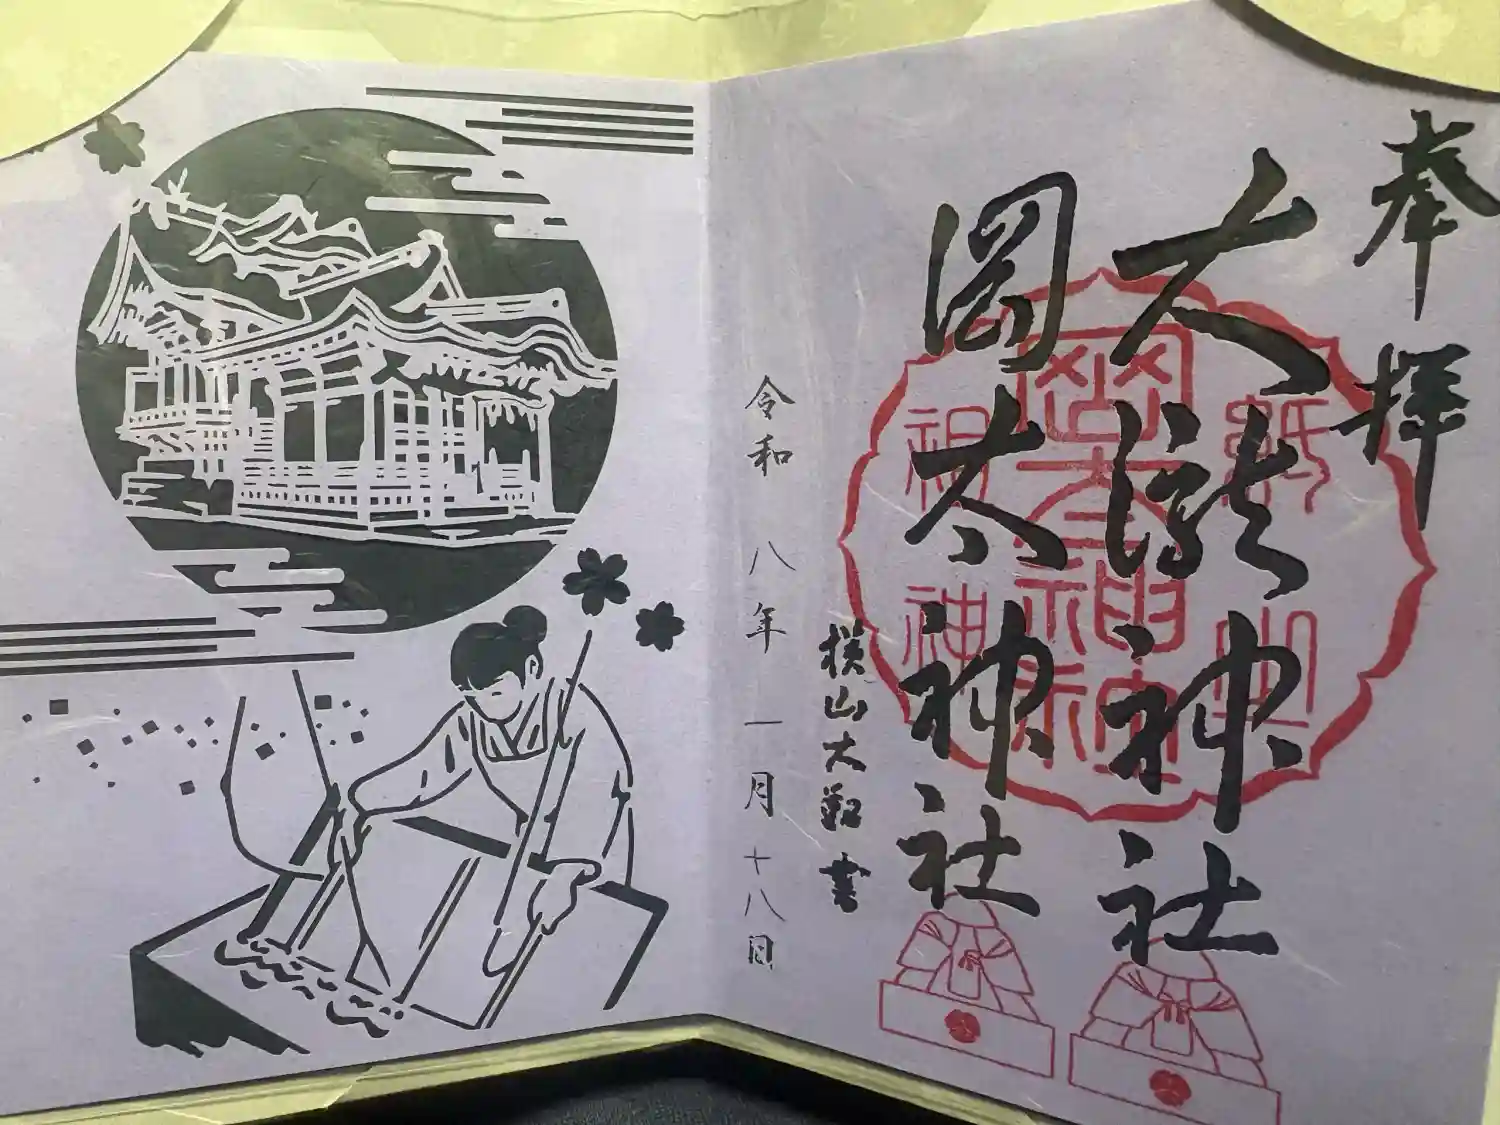 奉拝
大瀧神社
岡太神社
横山大観書
令和八年一月十八日
紙
祖
神
岡太神社